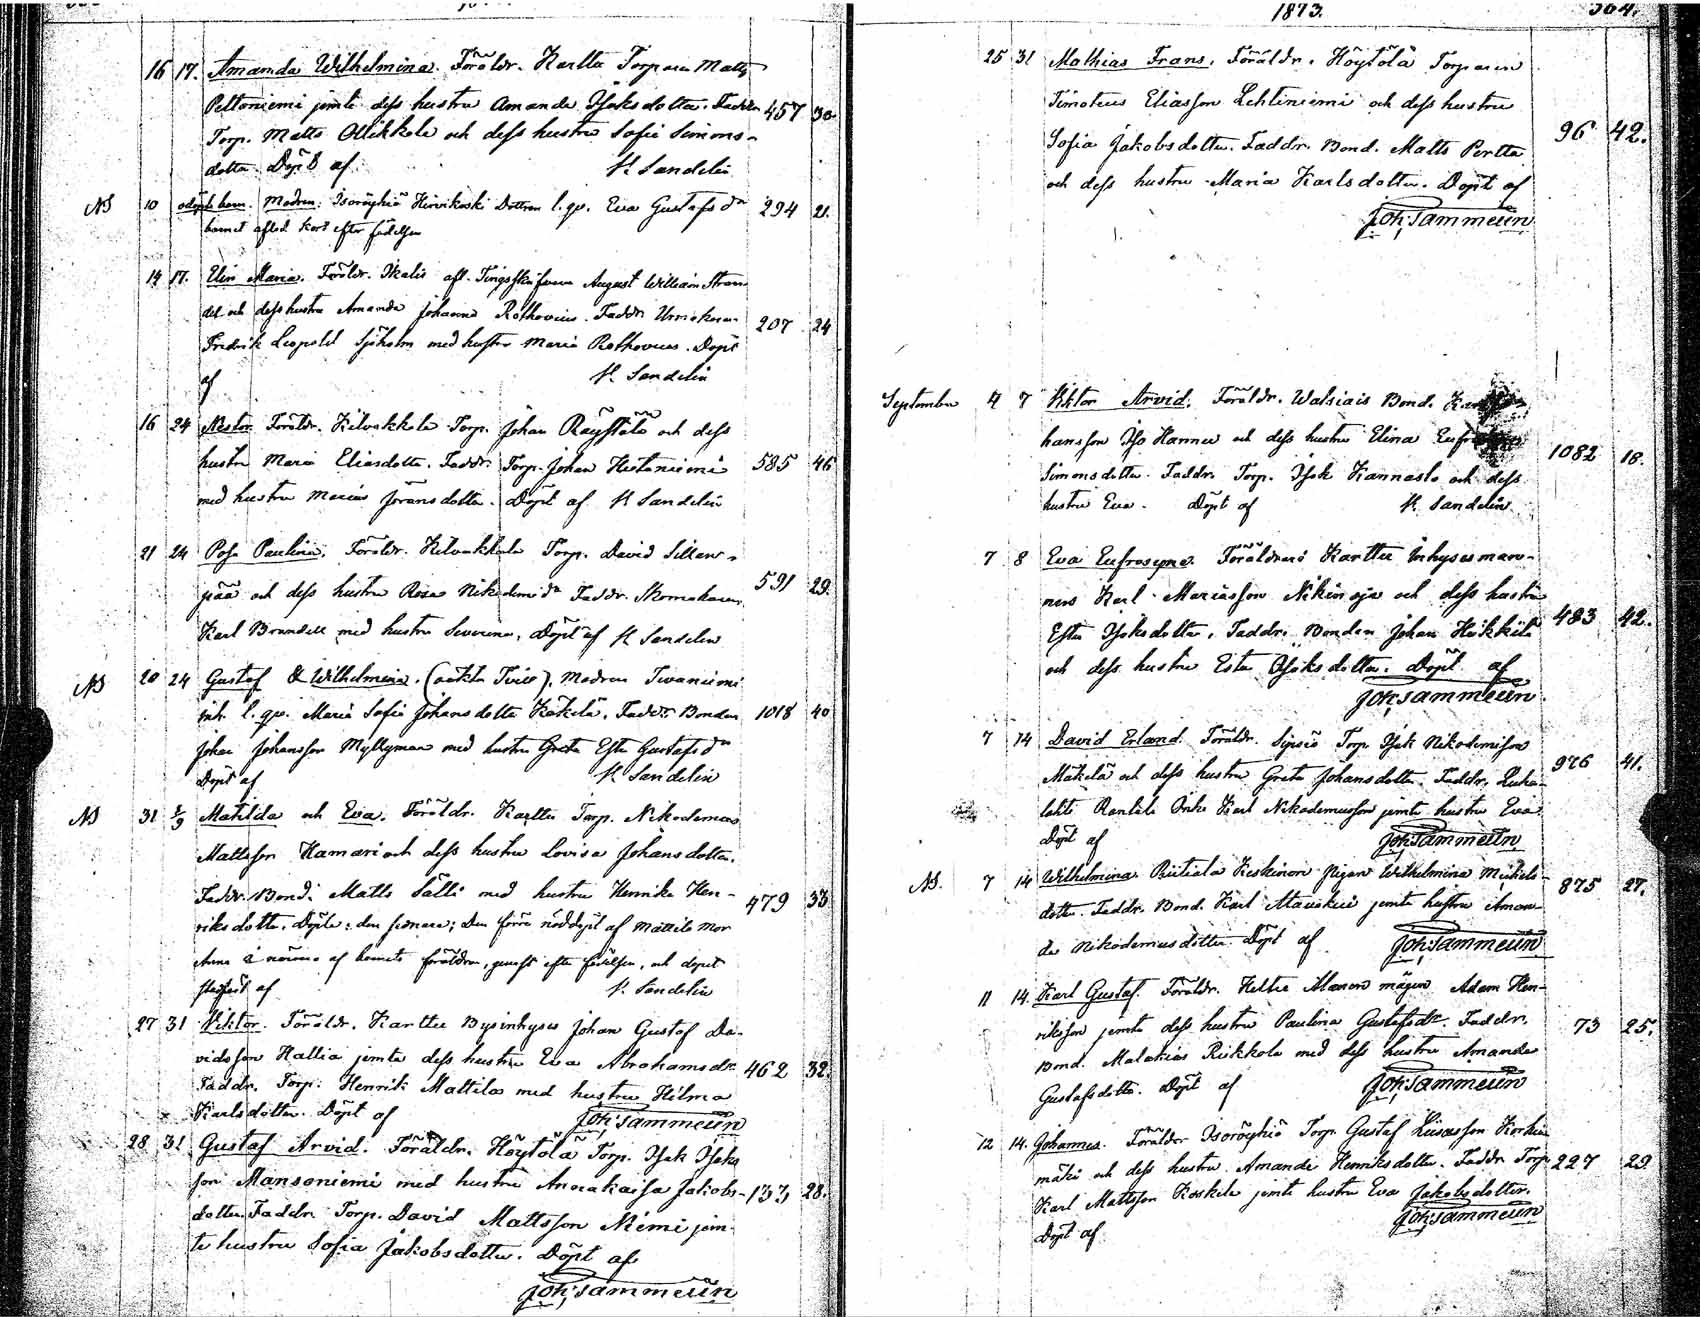 16 17. Amanda Wilhelmina. Föräldr. Karttu Torparen Matts
Peltoniemi jemte dess hustru Amanda Isaksdotter. Faddr. 457 30.
Torp. Matts Ollikkala och dess hustru Sofia Simons-
dotter. Döpt af K. Sandelin
NB 10 odöpt barn. Modren: Isoröyhiö Hirvikoski Dottren l. qv. Eva Gustafs dr 294 21.
barnet afled kort efter födelsen
14 17. Elin Maria. Föräldr. Ikalis aft. August William Stran-
del och dess hustru Amanda Johanna Rothovius. Faddr. Urmakaren 207 24
Fredrik Leopold Sjöholm med hustru Maria Rothovius. Döpt
af K. Sandelin
16 24 Nestor. Föräldr. Kilvakkala Torp. Johan Röyttölä och dess
hustru Maria Eliasdotter. Faddr. Torp. Johan Hietaniemi 585 46
med hustru Maria Jöransdotter. Döpt af K. Sandelin
21 24 Rosa Paulina. Föräldr. Kilvakkala Torp. David Sillan-
pää och dess hustru Rosa Nikodemi dr Faddr. Skomakaren 591 29.
Karl Brandell med hustru Severina. Döpt af K. Sandelin
NB 20 24 Gustaf & Wilhelmina. (oäkta Tvill). Modren Tevaniemi
inh. l. qv. Maria Sofia Johansdotter Käkelä. Faddr. Bonden 1018 40
Johan Johansson Myllymaa med hustru Greta Ester Gustafs dr
Döpt af K. Sandelin
NB 31 1/9 Matilda och Eva. Föräldr. Karttu Torp. Nikodemus
Mattsson Hamari och dess hustru Lovisa Johansdotter.
Faddr. Bond. Matts Sälli med hustru Henrika Hen- 479 33
riksdotter. Döpte: den sednare; Den förra nöddöpt af Mattila mor
Anna i närvaro af barnets föräldrar, genast efter födelsen, och dopet
stadfäst af K. Sandelin
27 31 Viktor. Föräldr. Karttu Bysinhyses Johan Gustaf Da-
vidsson Kallia jemte dess hustru Eva Abrahamsdr. 462 32.
Faddr. Torp. Henrik Mattila med hustru Hilma
Karlsdotter. Döpt af Joh: Tammelin
28 31 Gustaf Arvid. Föräldr. Höytölä Torp. Isak Isaks
son Mansoniemi med hustru Annakaisa Jakobs- 133 28.
dotter. Faddr. Torp. David Mattsson Niemi jem-
te hustru Sofia Jakobsdotter. Döpt af
Joh: Tammelin
1873. 364.
25 31 Mathias Frans. Föräldr. Höytölä Torparen
Timoteus Eliasson Lehtiniemi och dess hustru
Sofia Jakobsdotter. Faddr. Bond. Matts Pertta 96 42.
och dess hustru Maria Karlsdotter. Döpt af
Joh: Tammelin
September 4 7 Viktor Arvid. Föräldr. Watsiais Bond.
hansson Iso Hannu och dess hustru Elina 1082 18.
Simonsdotter. Faddr. Torp. Isak Kannasto och dess
hustru Eva. Döpt af K. Sandelin
7 8 Eva Eufrosyne. Föräldrar: Karttu Inhysesman-
nen Karl Mariasson Nikinoja och dess hustru
Ester Isaksdotter. Faddr. Bonden Johan Heikkilä 483 42.
och dess hustru Ester Isaksdotter. Döpt af
Joh: Tammelin
7 14 David Erland. Föräldr. Sipsiö Torp. Isak Nikodemisson
Mäkelä och dess hustru Greta Johansdotter. Faddr. Luha- 976 41.
lahti Rantala Enkl. Karl Nikodemusson jemte hustru Eva
Döpt af Joh: Tammelin
NB. 7 14 Wilhelmina. Riitiala Keskinen Pigan Wilhelmina Mickels- 875 27.
dotter. Faddr. Bond. Karl jemte hustru Aman-
da Nikodemusdotter. Döpt af Joh: Tammelin
11 14. Karl Gustaf. Föräldr. Heltti Manon mågen Adam Hen-
riksson jemte dess hustru Paulina Gustafsdr. Faddr. 73 25.
Bond. Malakias Riikkola med dess hustru Amanda
Gustafsdotter. Döpt af Joh: Tammelin
12 14. Johannes. Föräldrar Isoröyhiö Torp. Gustaf Liisasson Korkia
mäki och dess hustru Amanda Henriksdotter. Faddr. Torp. 227 29
Karl Mattsson Koskela jemte hustru Eva Jakobsdotter.
Döpt af Joh: Tammelin